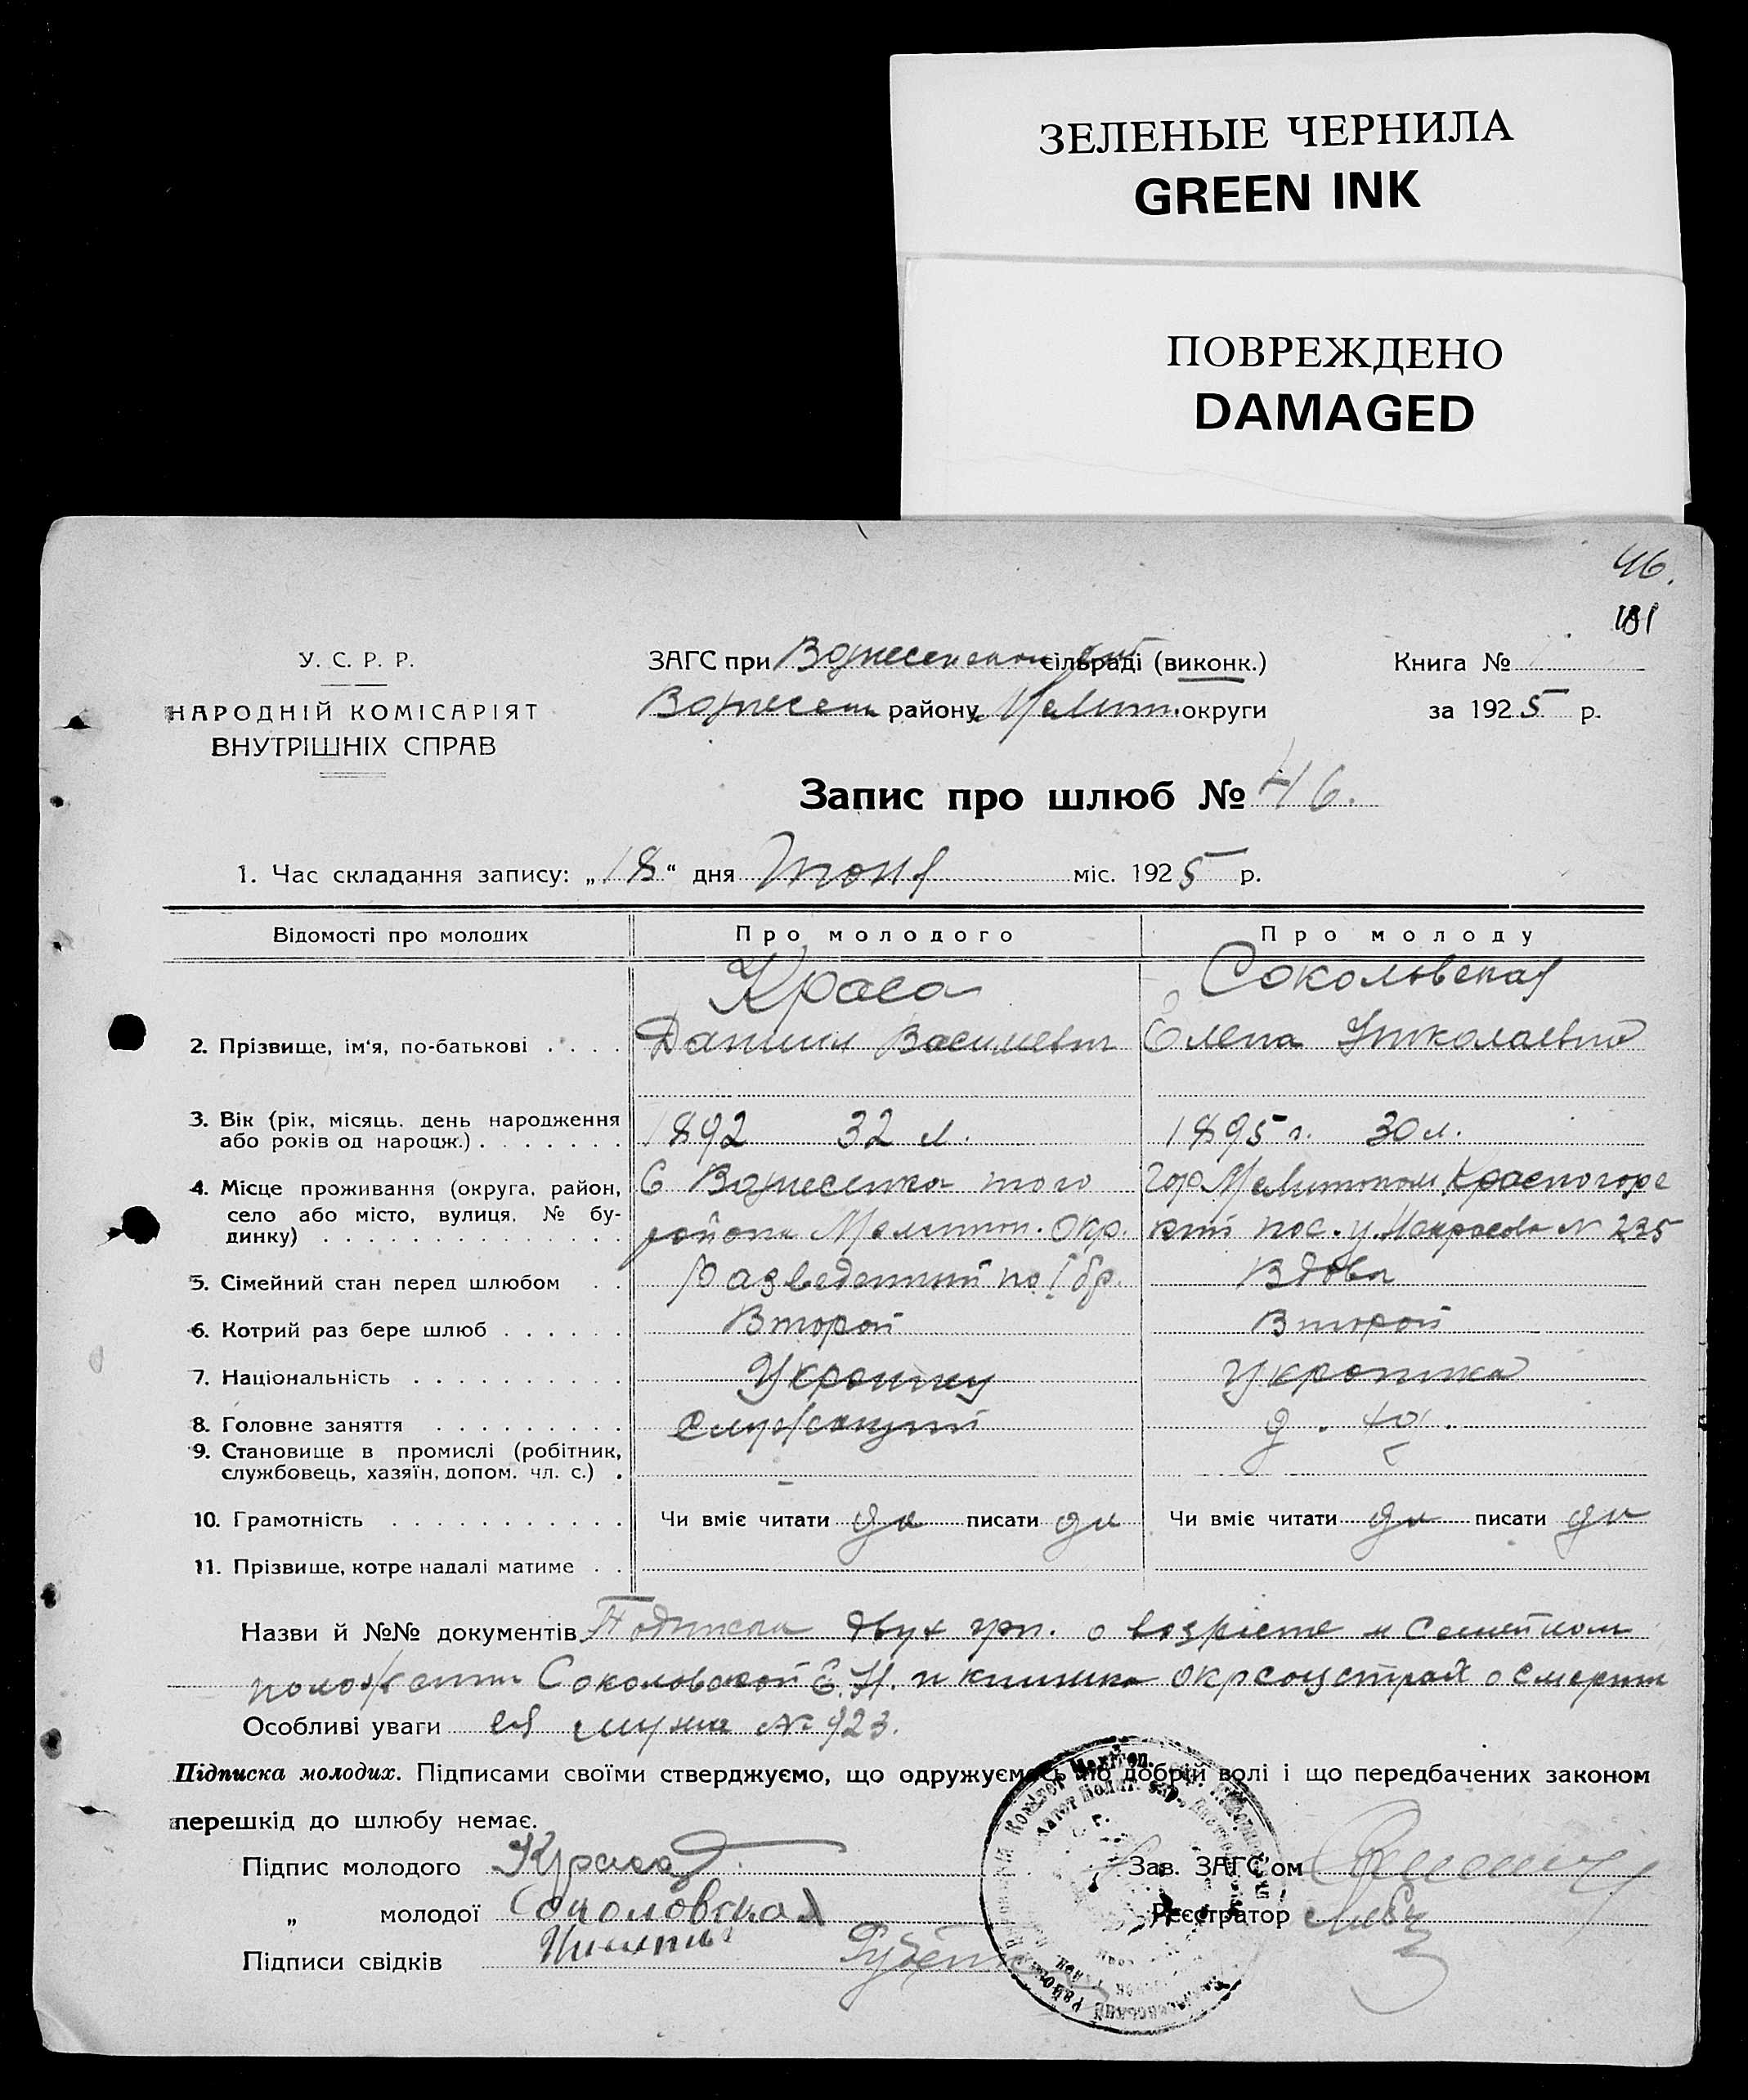 ЗЕЛЕНЫЕ ЧЕРНИЛА
GREEN INK
ПОВРЕЖДЕНО
DAMAGED
46.
181
У. С. Р. Р.
НАРОДНІЙ КОМІСАРІЯТ
ВНУТРІШНІХ СПРАВ
ЗАГС при Вознесенском сільраді (виконк.)
Вознесен районy Мелит. округи
Книга №
за 1925 р.
Запис про шлюб № 46.
1. Час складання запису: „18“ дня Июня міс. 1925 р.
Відомості про молодих Про молодого Про молоду
Краса Соколовская
2. Прізвище, ім'я, по-батькові . . . . Даниил Васильевич Елена Николаевна
3. Вік (рік, місяць, день народження
або років од народж.) . . . . . . . 1892 32 л. 1895 г. 30 л.
4. Місце проживання (округа, район, С Вознесенка того Гор Мелитополь Красногорс
село або місто, вулиця, № бу-
динку) . . . . . . . . . . . . . района Мелитоп. Окр. кий пос. у. Некрасова № 235
5. Сімейний стан перед шлюбом . . Разведенный по I бр. Вдова
6. Котрий раз бере шлюб . . . . . . Второй Второй
7. Національність . . . . . . . . . . Украинец Украинка
8. Головне заняття . . . . . . . . . Служащий д. х.
9. Становище в промислі (робітник,
службовець, хазяїн, допом. чл. с.) . -
10. Грамотність . . . . . . . . . . . Чи вміє читати да писати да Чи вміє читати да писати да
11. Прізвище, котре надалі матиме . .
Назви й №№ документів Подписка двух гр. о возрасте и семейном
положении Соколовской Е. Н. и книжка окрсоцстрах о смерти
Особливі уваги ея мужа № 923.
Підписка молодих. Підписами своїми стверджуємо, що одружуємось по добрій волі і що передбачених законом
перешкід до шлюбу немає.
Підпис молодого Краса
Зав. ЗАГС'ом
„ молодої Соколовская
Реєстратор
Підписи свідків